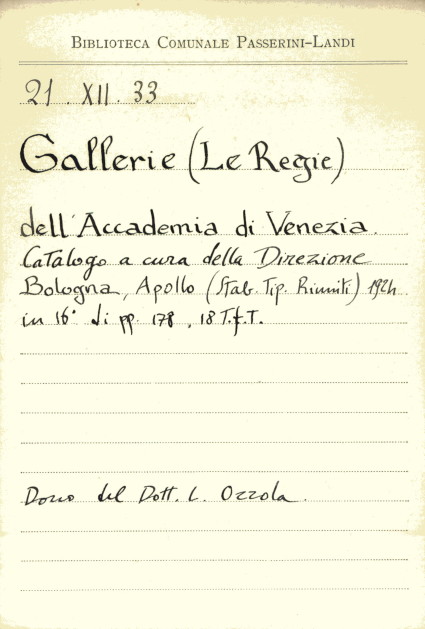 Biblioteca Comunale Passerini-Landi
21. XII. 33
Gallerie (Le Regie)
dell'Accademia di Venezia.
Catalogo a cura della Direzione
Bologna, Apollo (Stab. Tip. Riuniti) 1924
in 16° di pp. 178, 18 T.f.T.
Dono del Dott. L. Ozzola.